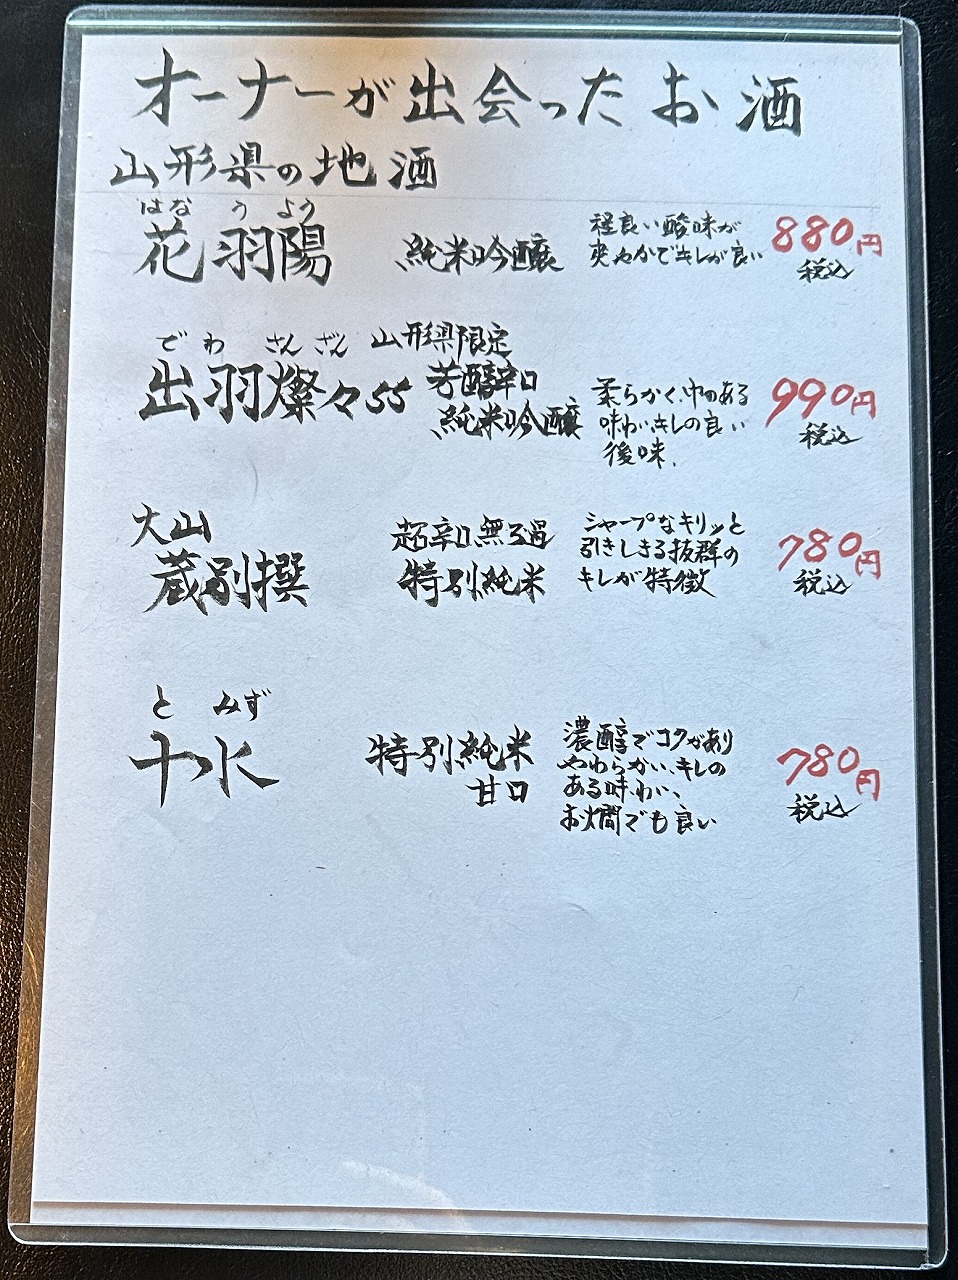 オーナーが出会ったお酒
山形県の地酒
はな う よう
花羽陽
純米吟醸
程良い酸味が
爽やかでキレが良い
880円
税込
でわ さんざん
出羽燦々55
山形県限定
芳醇辛口
純米吟醸
柔らかく、巾のある
味わい、キレの良い
後味.
990円
税込
大山
蔵別撰
超辛口、無ろ過
特別純米
シャープなキリッと
引きしまる抜群の
キレが特徴
780円
税込
と みず
十水
特別純米
甘口
濃醇でコクがあり
やわらかい、キレの
ある味わい、
お燗でも良い
780円
税込